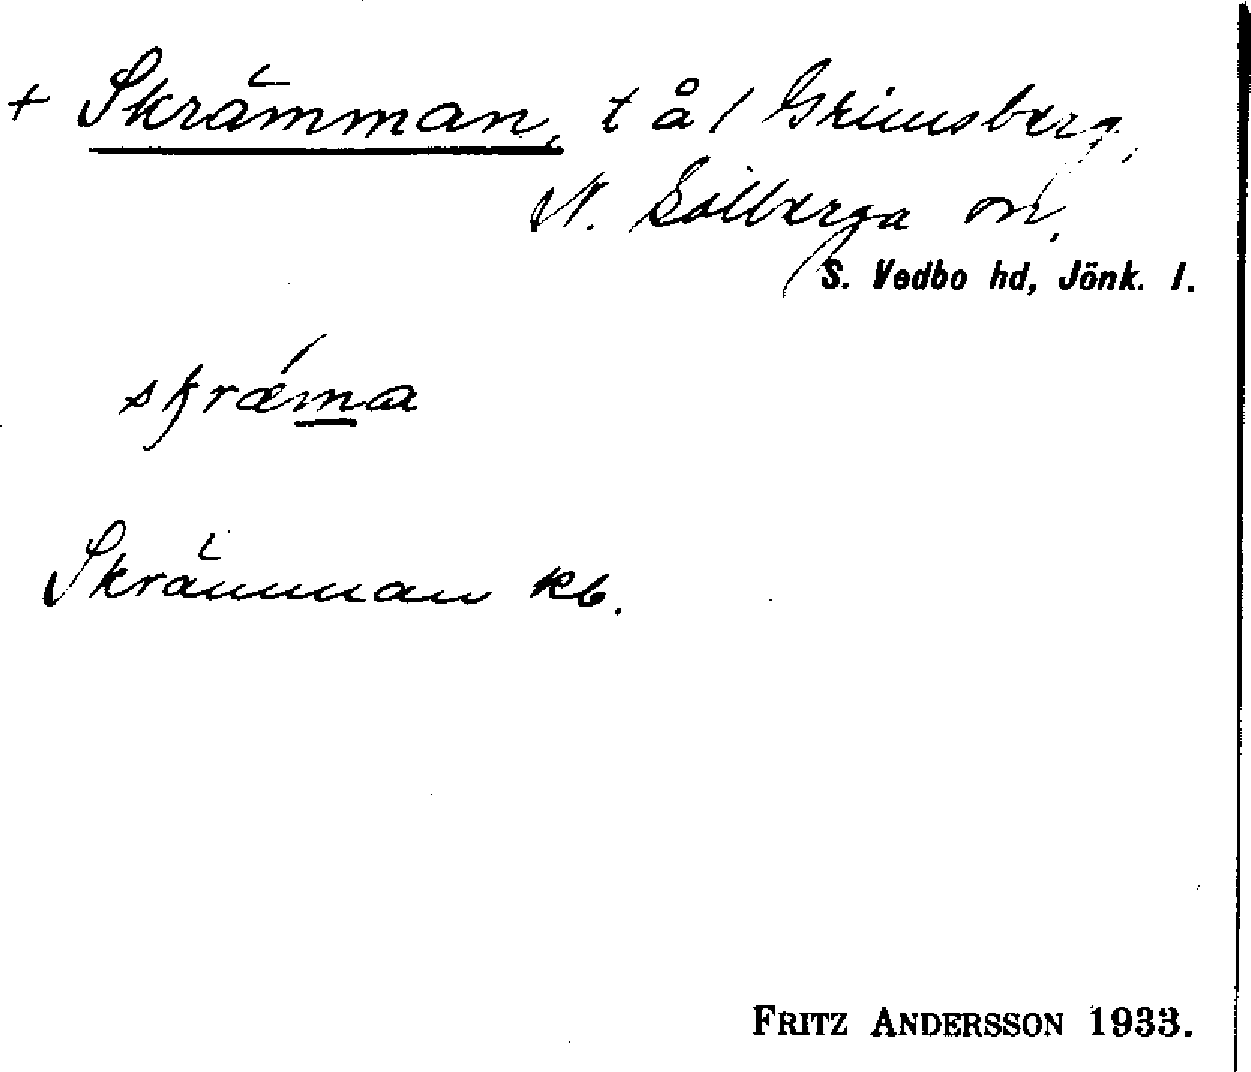 + Skrämman, t å / Grimsberg,
N. Solberga sn,
S. Vedbo hd, Jönk. l.
skræ´ma
Skrämman kb.
FRITZ ANDERSSON 1933.